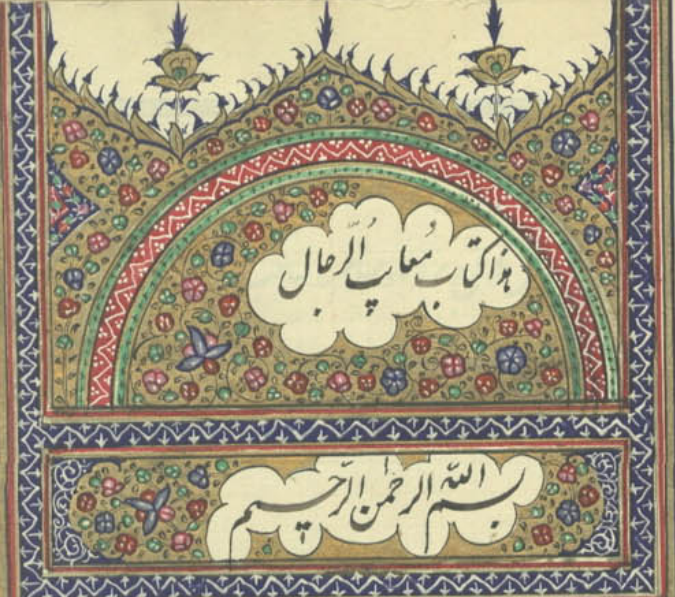 هذا كتاب معایب الرجال
بسم الله الرحمن الرحيم